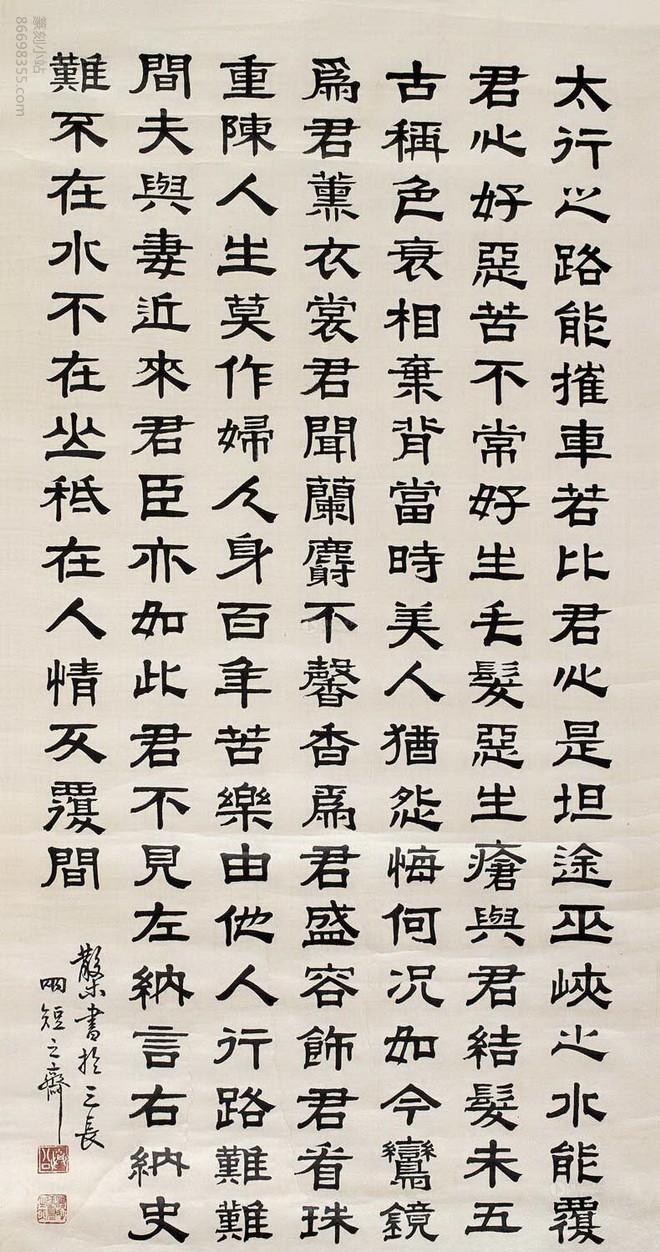 太行之路能摧車若比君心是坦途巫峽之水能覆
君心好惡苦不常好生毛髮惡生瘡與君結髮未五
古稱色衰相棄背當時美人猶怨悔何況如今鸞鏡
爲君薰衣裳君聞蘭麝不馨香爲君盛容飾君看珠
重陳人生莫作婦人身百年苦樂由他人行路難難
間夫與妻近來君臣亦如此君不見左納言右納史
難不在水不在山秪在人情反覆間
散木書於三長
兩短之齋
篆刻小站
86698355.com